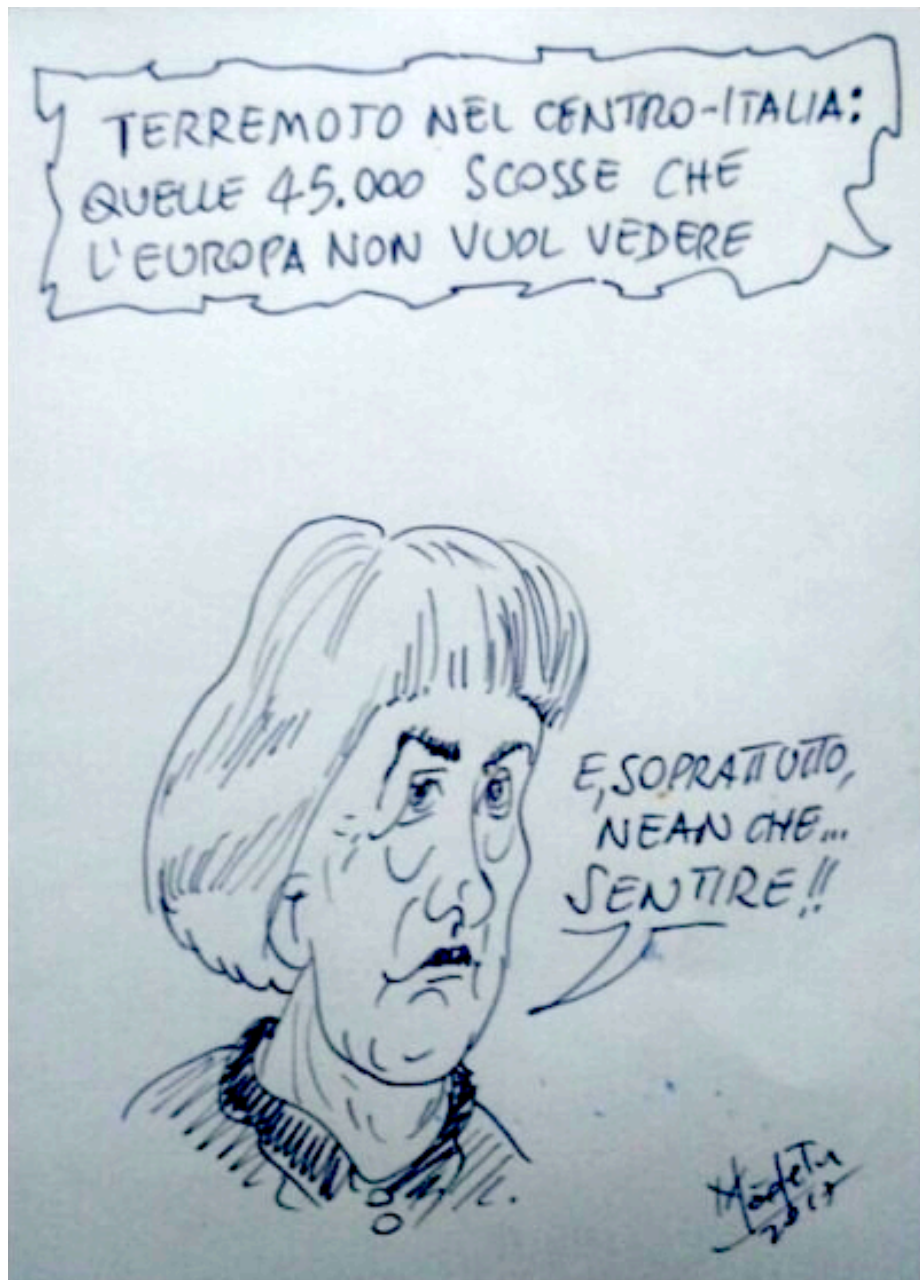 TERREMOTO NEL CENTRO-ITALIA:
QUELLE 45.000 SCOSSE CHE
L'EUROPA NON VUOL VEDERE
E, SOPRATTUTTO,
NEANCHE...
SENTIRE!!
2017